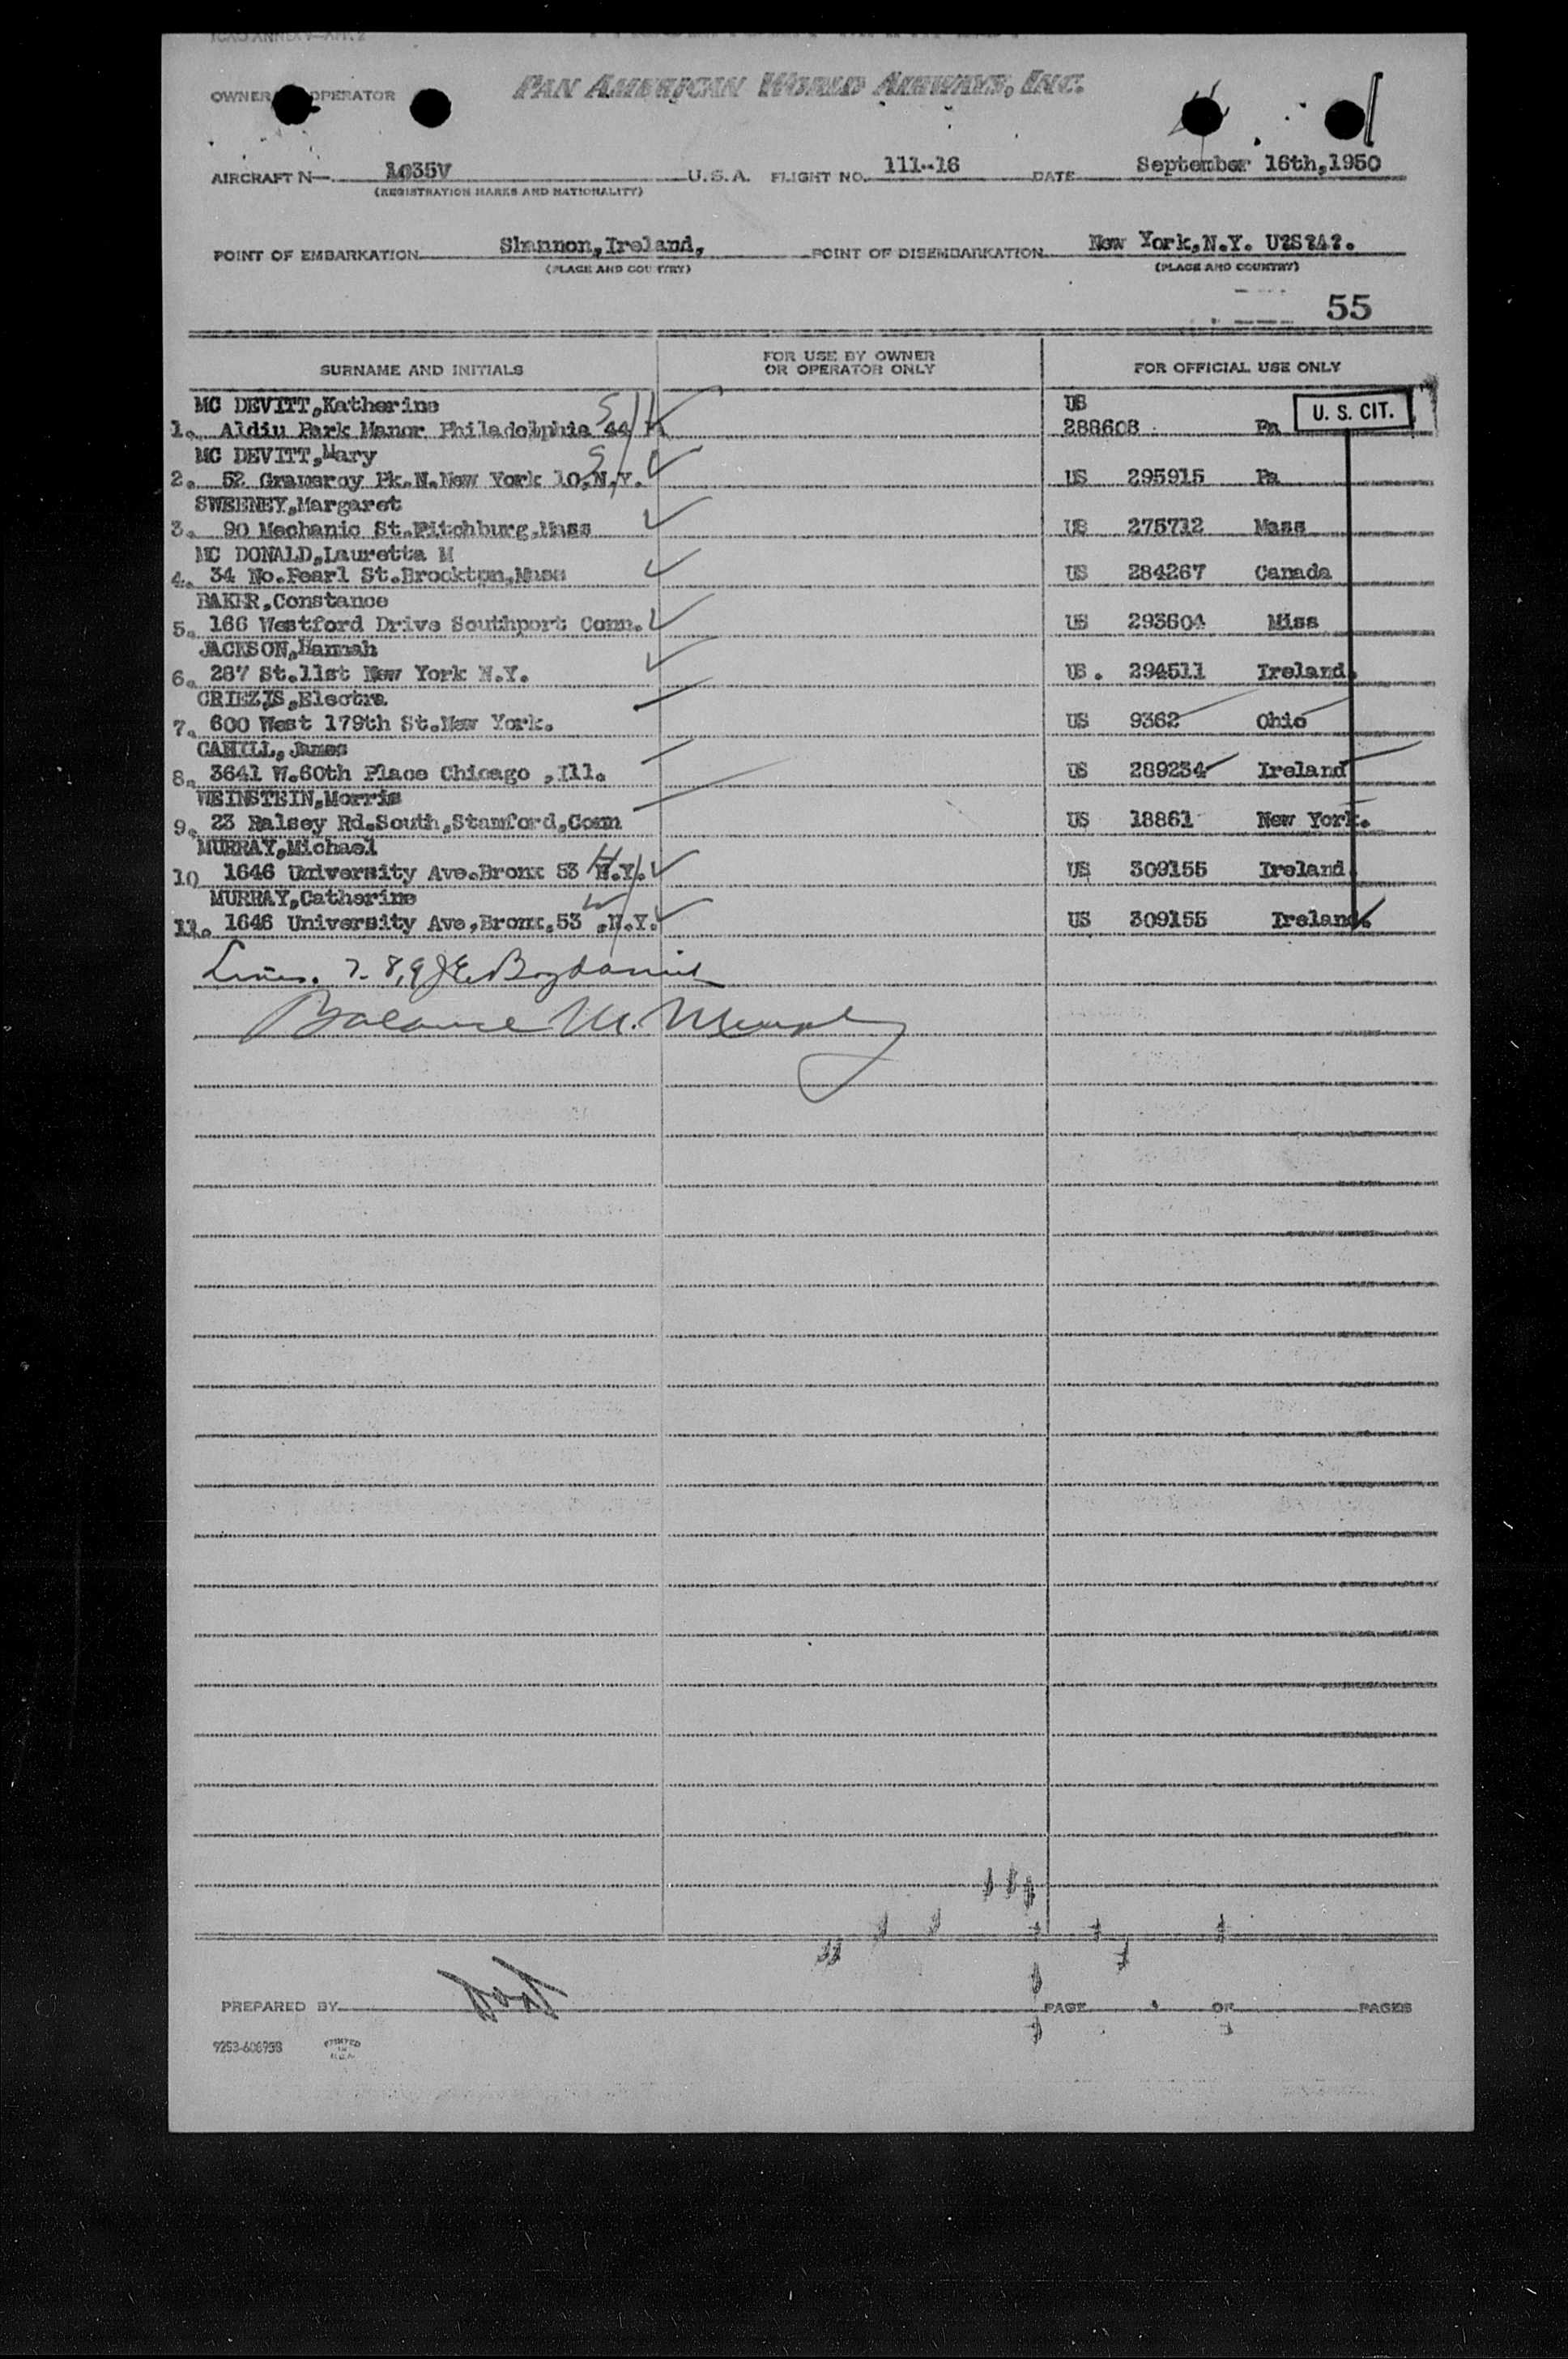 ICAO ANNEX 9—APP. 2
OWNER OPERATOR PAN AMERICAN WORLD AIRWAYS, INC.
AIRCRAFT N— 1035V U.S.A. FLIGHT NO. 111--16 DATE September 16th,1950
(REGISTRATION MARKS AND NATIONALITY)
POINT OF EMBARKATION Shannon,Ireland, POINT OF DISEMBARKATION New York,N.Y. U?S?A?.
(PLACE AND COUNTRY) (PLACE AND COUNTRY)
55
SURNAME AND INITIALS FOR USE BY OWNER OR OPERATOR ONLY FOR OFFICIAL USE ONLY
MC DEVITT,Katherine US U. S. CIT.
1. Aldiu Park Manor Philadelphia 44 288608 Pa
MC DEVITT,Mary
2. 52 Grameroy Pk.N.New York 10,N.Y. US 295915 Pa
SWEENEY,Margaret
3. 90 Mechanic St.Fitchburg,Mass US 275712 Mass
MC DONALD,Lauretta M
4. 34 No.Pearl St.Brockton,Mass US 284267 Canada
BAKER,Constance
5. 166 Westford Drive Southport Conn. US 293604 Miss
JACKSON,Hannah
6. 287 St.11st New York N.Y. US. 294511 Ireland.
GRIEZIS,Electra
7. 600 West 179th St.New York. US 9362 Ohio
CAHILL, James
8. 3641 W.60th Place Chicago ,Ill. US 289234 Ireland
WEINSTEIN,Morris
9. 23 Halsey Rd.South,Stamford,Conn US 18861 New York.
MURRAY,Michael
10 1646 University Ave.Bronx 53 N.Y. US 309155 Ireland.
MURRAY,Catherine
11. 1646 University Ave,Bronx,53 ,N.Y. US 309155 Ireland.
Lines. 7-8,9
Balance M. Murphy
PREPARED BY PAGE OF PAGES
9253-606958 PRINTED IN U.S.A.